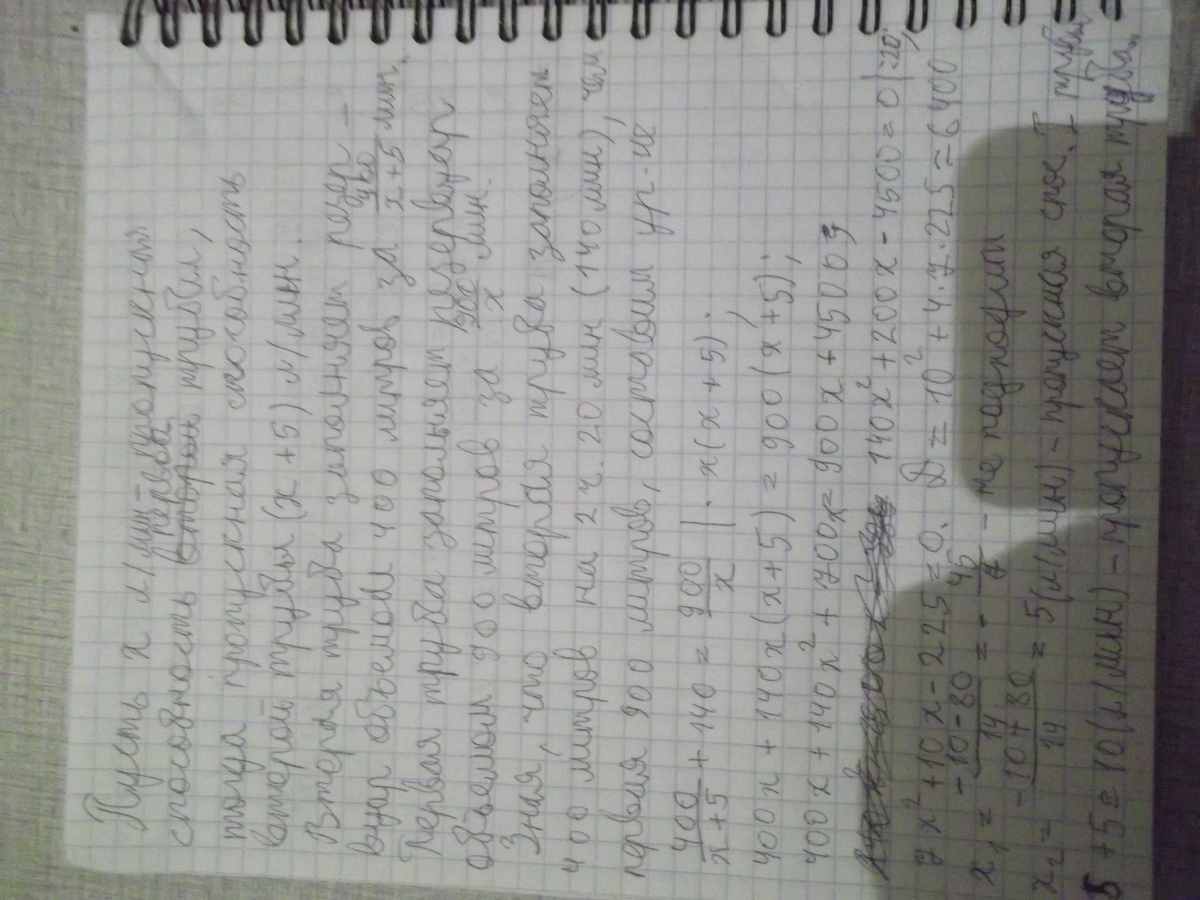 Пусть x л/мин – пропускная
способность первой трубы,
тогда пропускная способность
второй трубы (x + 5) л/мин.
Вторая труба заполняет резер-
вуар объемом 400 литров за 400/(x+5) мин.
Первая труба заполняет резервуар
объемом 900 литров за 900/x мин.
Зная, что вторая труба заполняет
400 литров на 2 ч. 20 мин (140 мин), чем
первая 900 литров, составим ур-ие
400/(x+5) + 140 = 900/x | · x(x+5).
400x + 140x(x+5) = 900(x+5);
400x + 140x² + 700x = 900x + 4500;
140x² + 200x - 4500 = 0 |:20;
7x² + 10x - 225 = 0. D = 10² + 4·7·225 = 6400
x₁ = (-10-80)/14 = -45/7 - не подходит
x₂ = (-10+80)/14 = 5 (л/мин) - пропускная спос. I трубы
5 + 5 = 10 (л/мин) - пропускает вторая труба.